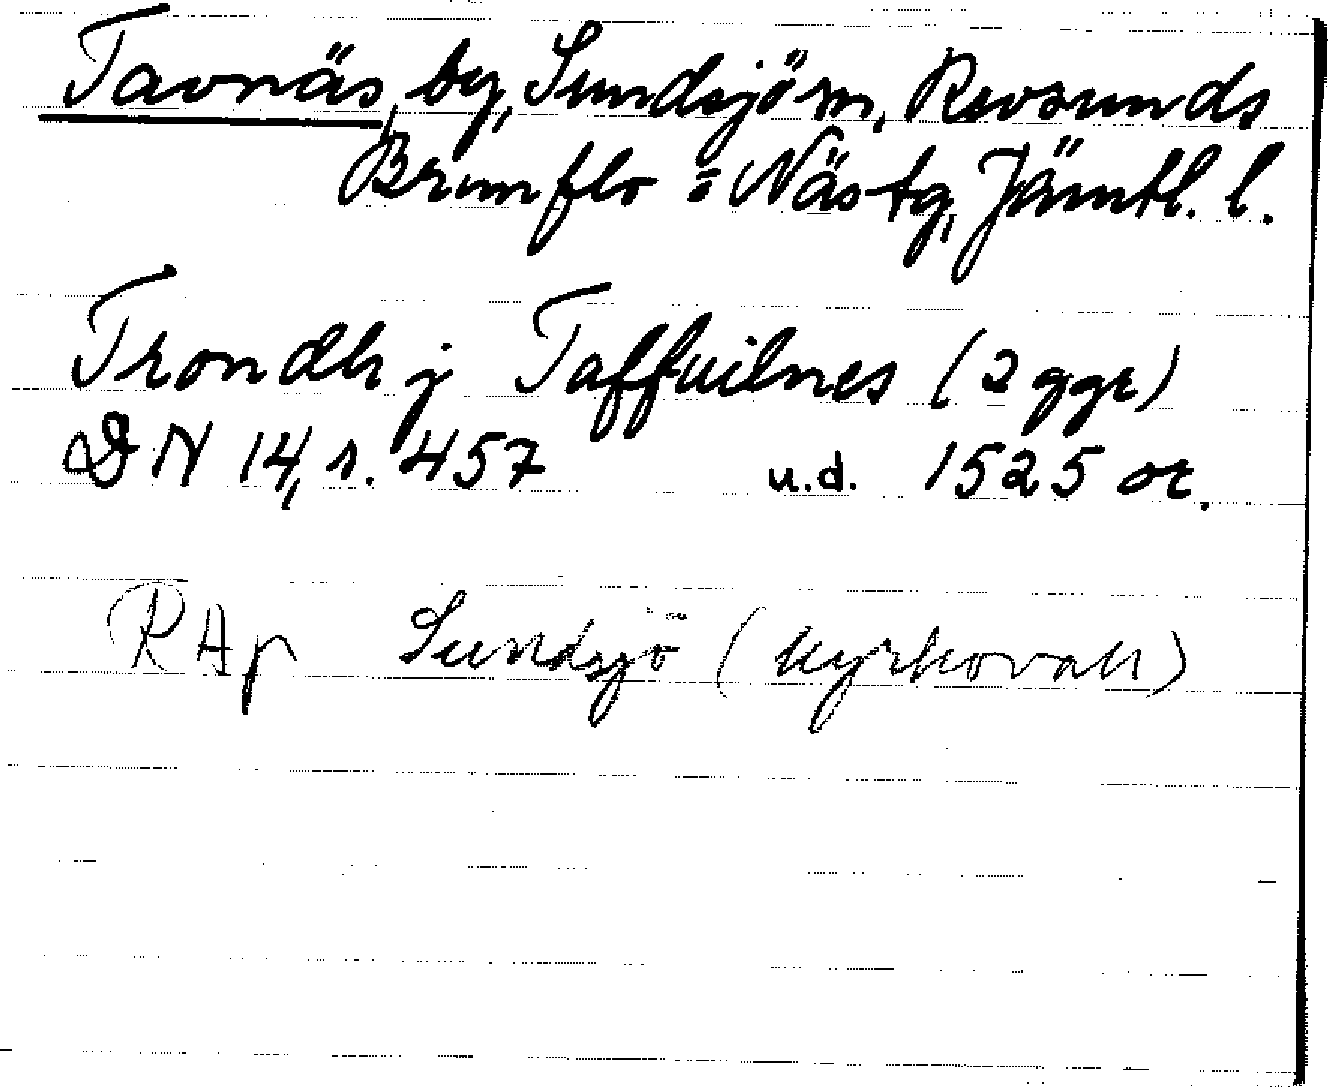 Tavnäs, by, Sundsjö sn, Revsunds
Brunflo o Näs tg, Jämtl. l.
Trondh j Taffuilnes (2 ggr)
DN 14, s. 457 u.d. 1525 or.
RAp Sundsjö (kyrkovall)